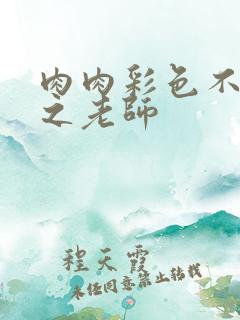 肉肉彩色不
之老師
程天霞
未经同意禁止转载